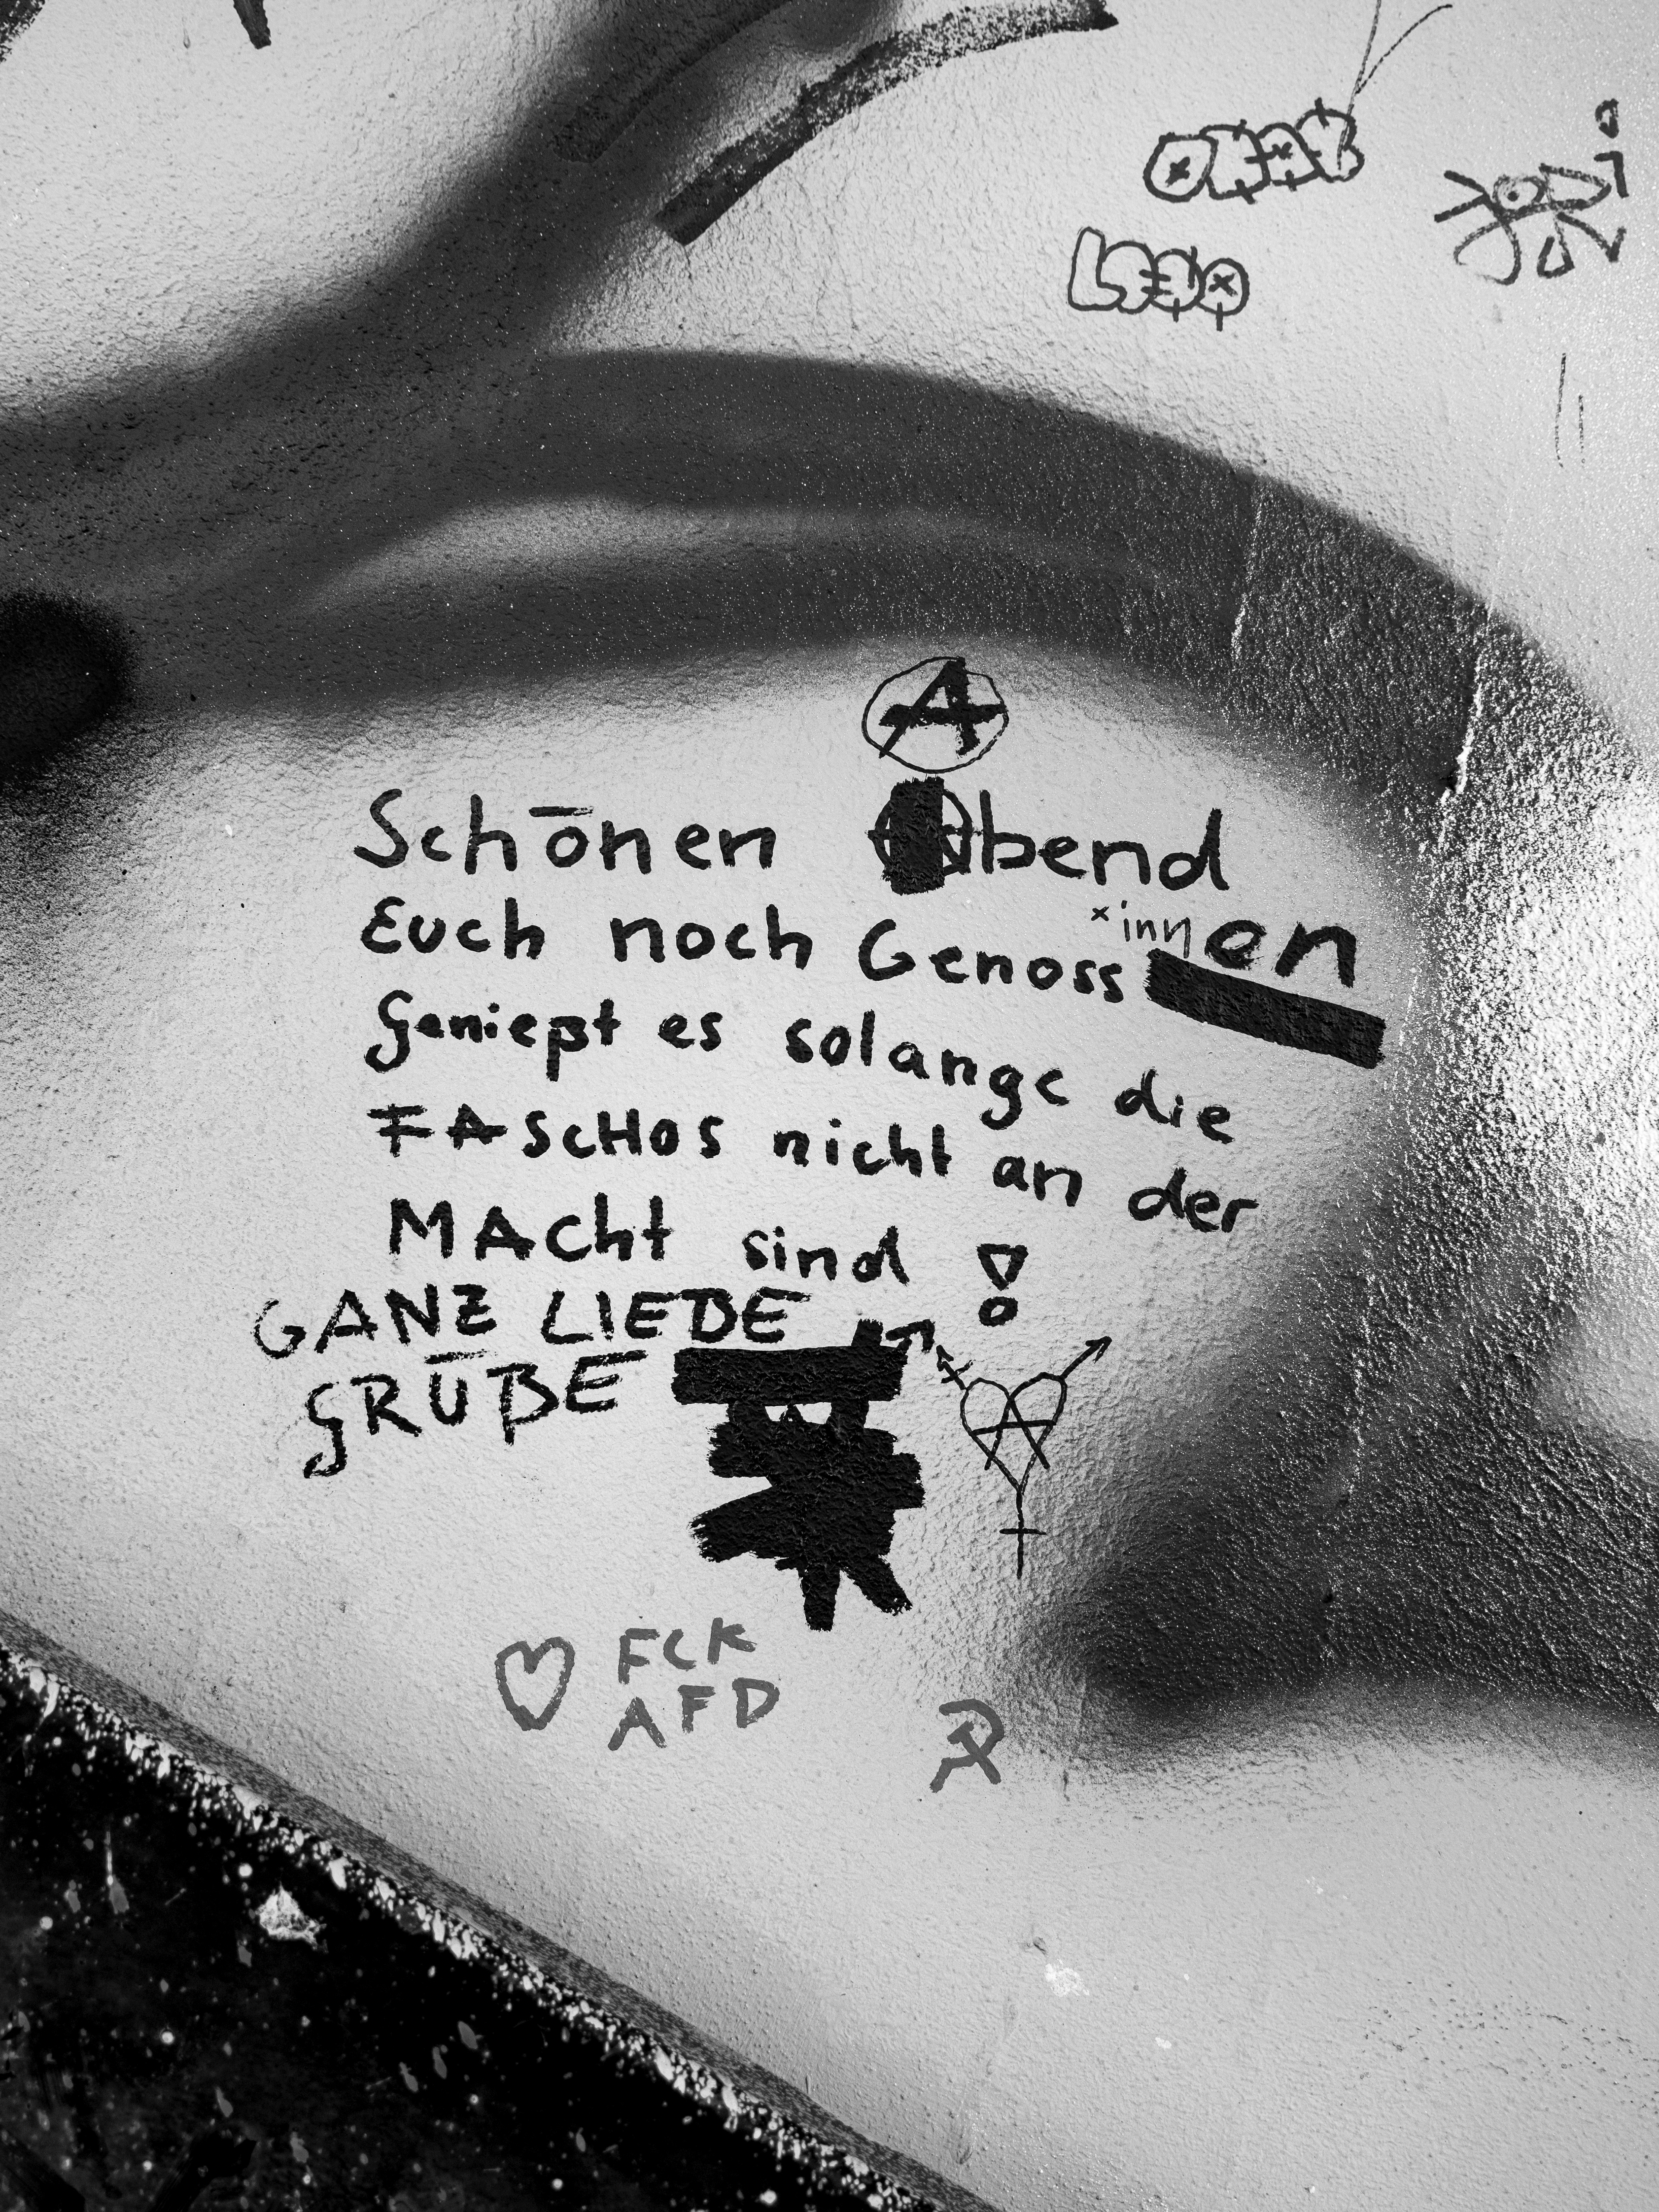 Schōnen Abend
Euch noch Genoss*innen
Genießt es solange die
FASCHOS nicht an der
MACht sind!
GANZ LIEBE
GRŪßE
FCK
AFD